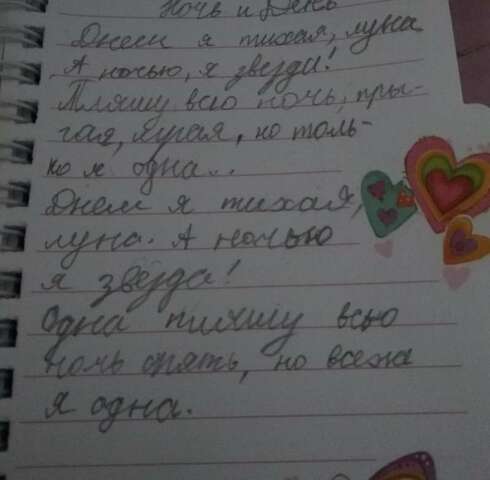 Ночь и День
Днем я тихая, луна
А ночью, я звезди!
Пляшу всю ночь, пры-
гая, ругая, но толь-
ко я одна...
Днем я тихая,
луна. А ночью
я звезда!
Одна пляшу всю
ночь опять, но всежа
я одна.